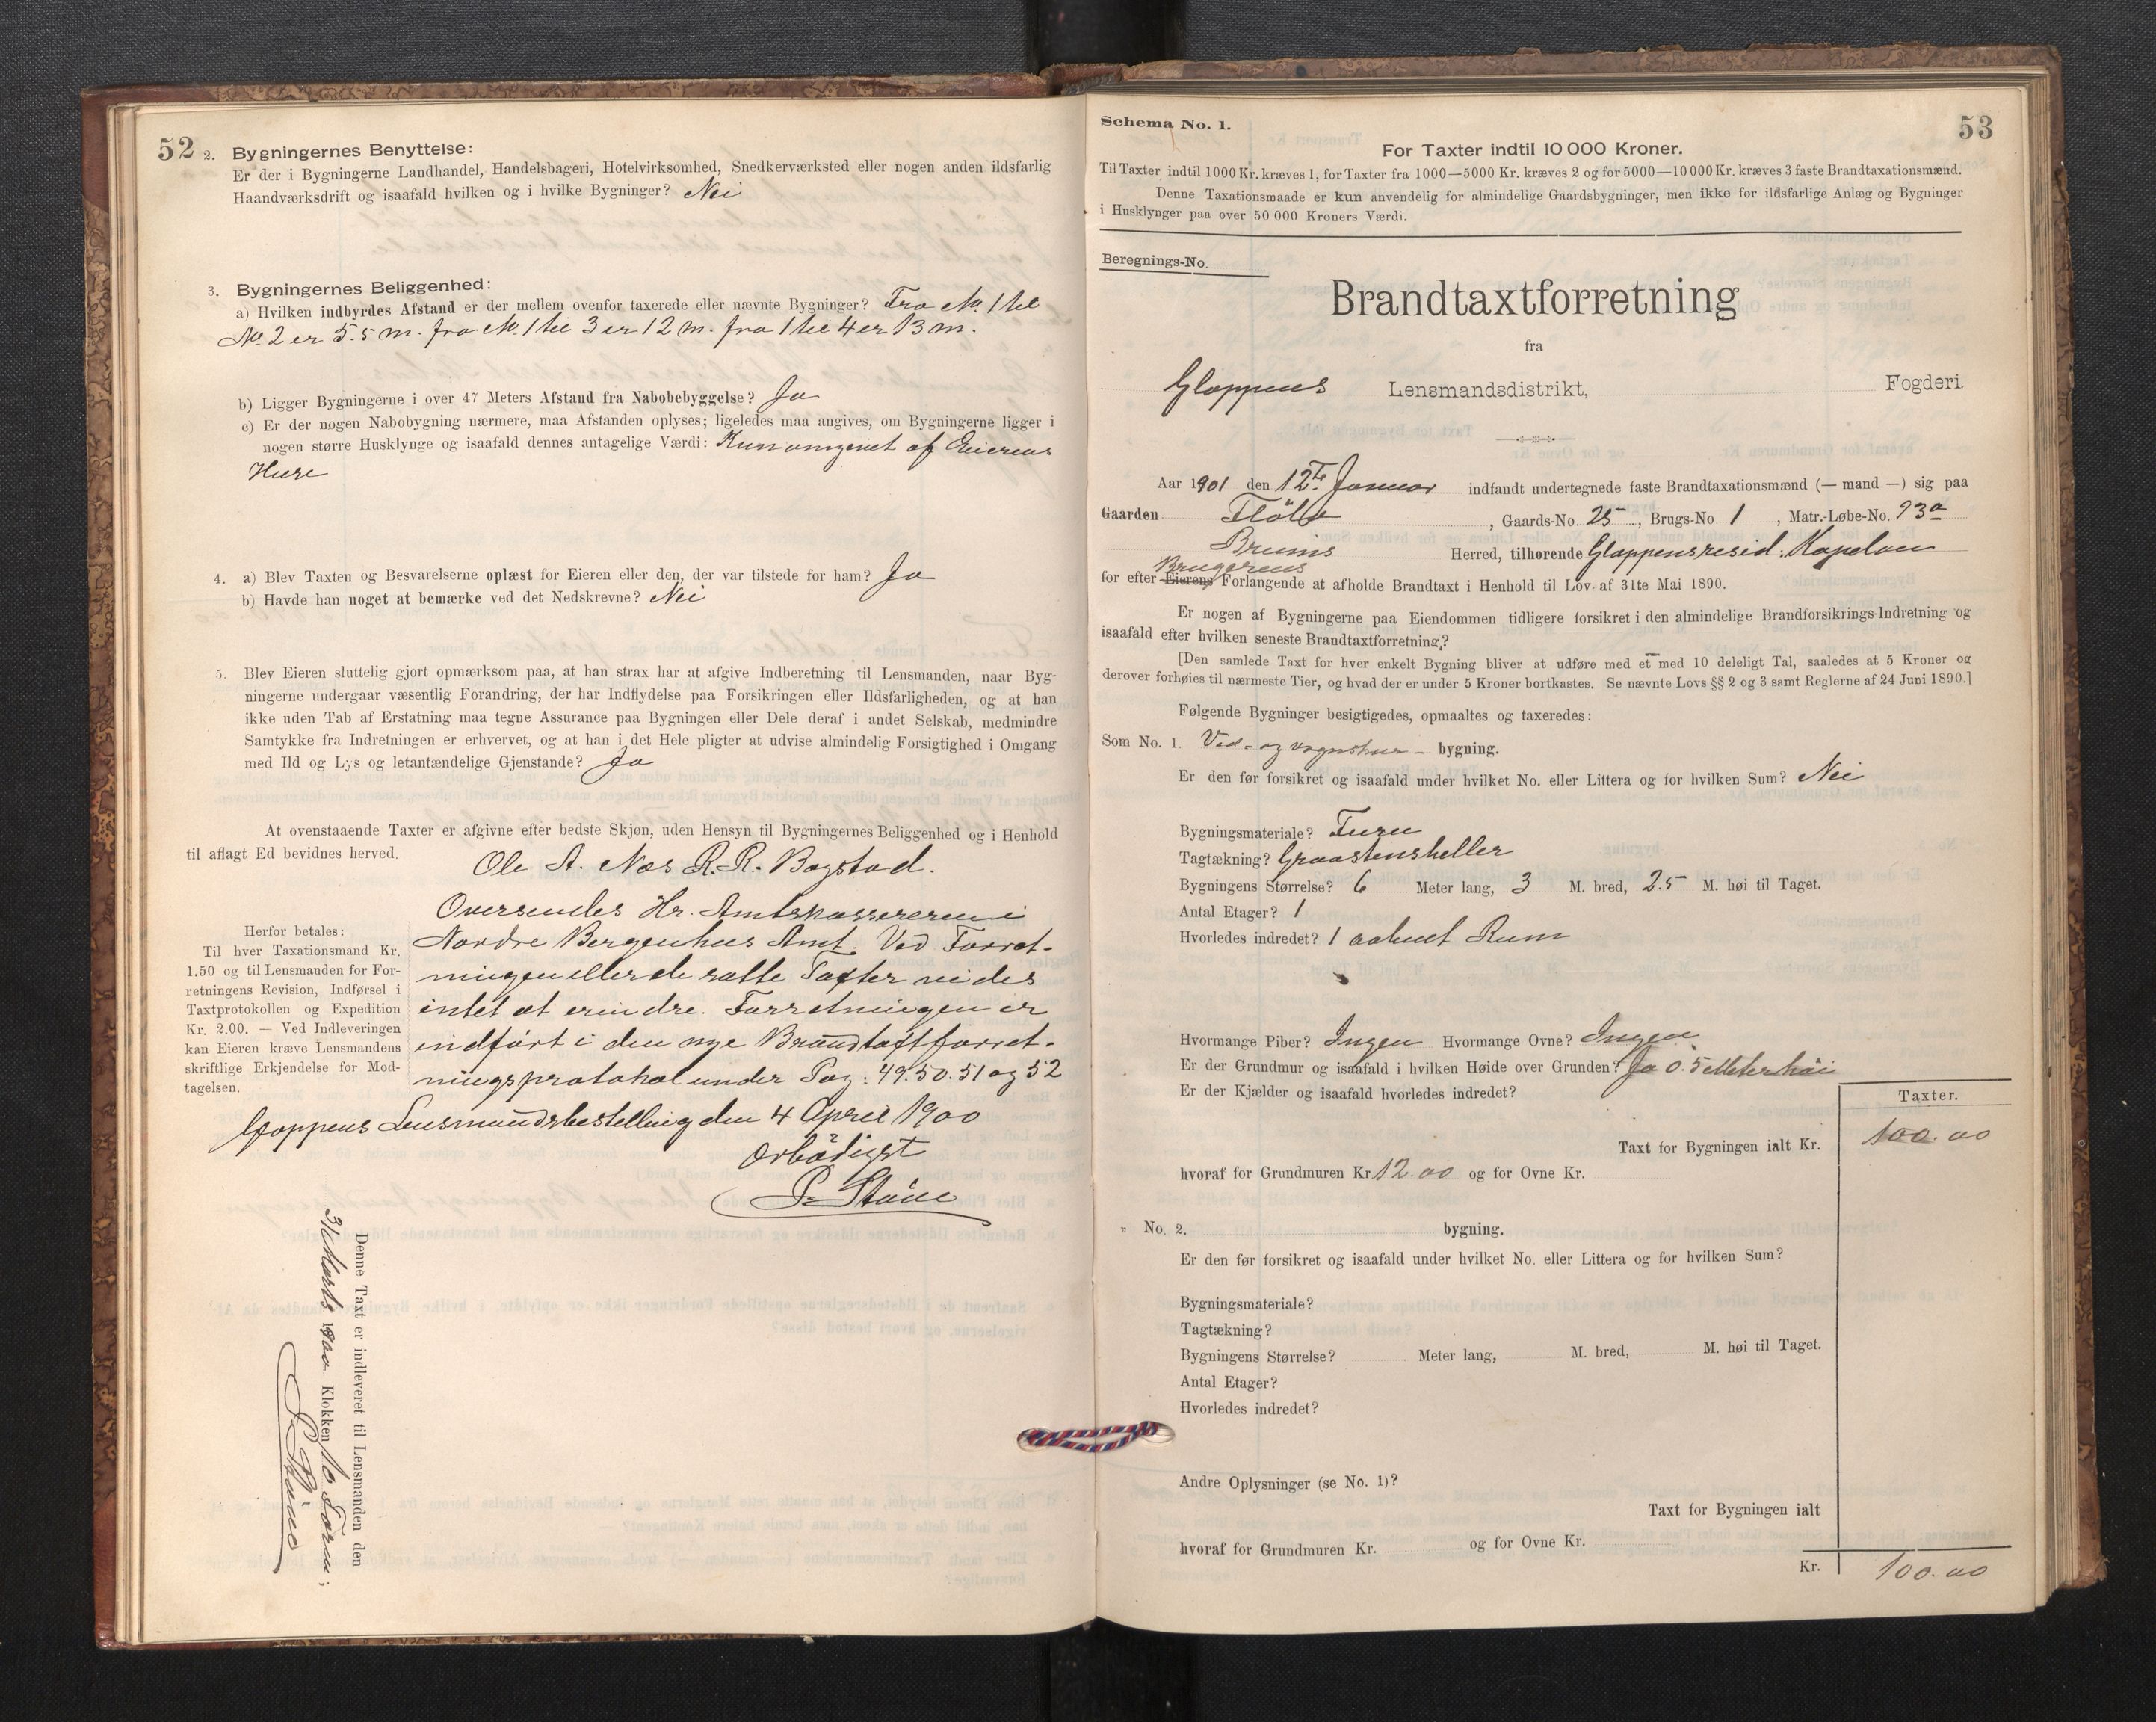 52
2. Bygningernes Benyttelse:
Er der i Bygningerne Landhandel, Handelsbageri, Hotelvirksomhed, Snedkerværksted eller nogen anden ildsfarlig
Haandværksdrift og isaafald hvilken og i hvilke Bygninger? Nei
3. Bygningernes Beliggenhed:
a) Hvilken indbyrdes Afstand er der mellem ovenfor taxerede eller nævnte Bygninger? Fra No. 1 til
No. 2 er 5.5 m. fra No. 1 til 3 er 12 m. fra 1 til 4 er 13 m.
b) Ligger Bygningerne i over 47 Meters Afstand fra Nabobebyggelse? Ja
c) Er der nogen Nabobygning nærmere, maa Afstanden oplyses; ligeledes maa angives, om Bygningerne ligger i
nogen større Husklynge og isaafald dennes antagelige Værdi: Kun omgivet af Eierens
Huse
4. a) Blev Taxten og Besvarelserne oplæst for Eieren eller den, der var tilstede for ham? Ja
b) Havde han noget at bemærke ved det Nedskrevne? Nei
5. Blev Eieren sluttelig gjort opmærksom paa, at han strax har at afgive Indberetning til Lensmanden, naar Byg-
ningerne undergaar væsentlig Forandring, der har Indflydelse paa Forsikringen eller Ildsfarligheden, og at han
ikke uden Tab af Erstatning maa tegne Assurance paa Bygningen eller Dele deraf i andet Selskab, medmindre
Samtykke fra Indretningen er erhvervet, og at han i det Hele pligter at udvise almindelig Forsigtighed i Omgang
med Ild og Lys og letantændelige Gjenstande? Ja
At ovenstaaende Taxter er afgivne efter bedste Skjøn, uden Hensyn til Bygningernes Beliggenhed og i Henhold
til aflagt Ed bevidnes herved.
Ole A. Nes R. R. Bogstad.
Oversendes Hr. Amtskassereren i
Nordre Bergenhus Amt. Ved Forret-
ningen eller de satte Taxter vides
intet at erindre. Forretningen er
indført i den nye Brandtaxtforret-
ningsprotokol under Pag: 49. 50. 51 og 52
Gloppens Lensmandsbestilling den 4 April 1900
Ærbødigst
P. Støine
Herfor betales:
Til hver Taxationsmand Kr.
1.50 og til Lensmanden for For-
retningens Revision, Indførsel i
Taxtprotokollen og Expedition
Kr. 2.00. — Ved Indleveringen
kan Eieren kræve Lensmandens
skriftlige Erkjendelse for Mod-
tagelsen.
Denne Taxt er indleveret til Lensmanden den
31 Marts 1900 Klokken 10 Form;
P. Støine
53
Schema No. 1.
For Taxter indtil 10 000 Kroner.
Til Taxter indtil 1000 Kr. kræves 1, for Taxter fra 1000—5000 Kr. kræves 2 og for 5000—10 000 Kr. kræves 3 faste Brandtaxationsmænd.
Denne Taxationsmaade er kun anvendelig for almindelige Gaardsbygninger, men ikke for ildsfarlige Anlæg og Bygninger
i Husklynger paa over 50 000 Kroners Værdi.
Beregnings-No.
Brandtaxtforretning
fra
Gloppens Lensmandsdistrikt, Fogderi.
Aar 1901 den 12te Januar indfandt undertegnede faste Brandtaxationsmænd (— mand —) sig paa
Gaarden Fløtte, Gaards-No. 25, Brugs-No 1, Matr.-Løbe-No. 93a
Breims Herred, tilhørende Gloppens resid. Kapelan
Brugerens
for efter Eierens Forlangende at afholde Brandtaxt i Henhold til Lov af 31te Mai 1890.
Er nogen af Bygningerne paa Eiendommen tidligere forsikret i den almindelige Brandforsikrings-Indretning og
isaafald efter hvilken seneste Brandtaxtforretning?
[Den samlede Taxt for hver enkelt Bygning bliver at udføre med et med 10 deleligt Tal, saaledes at 5 Kroner og
derover forhøies til nærmeste Tier, og hvad der er under 5 Kroner bortkastes. Se nævnte Lovs §§ 2 og 3 samt Reglerne af 24 Juni 1890.]
Følgende Bygninger besigtigedes, opmaaltes og taxeredes:
Som No. 1. Ved- og vognskur- bygning.
Er den før forsikret og isaafald under hvilket No. eller Littera og for hvilken Sum? Nei
Bygningsmateriale? Furu
Tagtækning? Graastensheller
Bygningens Størrelse? 6 Meter lang, 3 M. bred, 2.5 M. høi til Taget.
Antal Etager? 1
Hvorledes indredet? 1 aabent Rum
Hvormange Piber? Ingen Hvormange Ovne? Ingen
Er der Grundmur og isaafald i hvilken Høide over Grunden? Ja 0.5 Meter høi
Er der Kjælder og isaafald hvorledes indredet?
Taxter.
Taxt for Bygningen ialt Kr. 100.00
hvoraf for Grundmuren Kr. 12.00 og for Ovne Kr.
" No. 2. bygning.
Er den før forsikret og isaafald under hvilket No. eller Littera og for hvilken Sum?
Bygningsmateriale?
Tagtækning?
Bygningens Størrelse? Meter lang, M. bred, M. høi til Taget.
Antal Etager?
Hvorledes indredet?
Andre Oplysninger (se No. 1)?
Taxt for Bygningen ialt
hvoraf for Grundmuren Kr. og for Ovne Kr.
Kr. 100.00